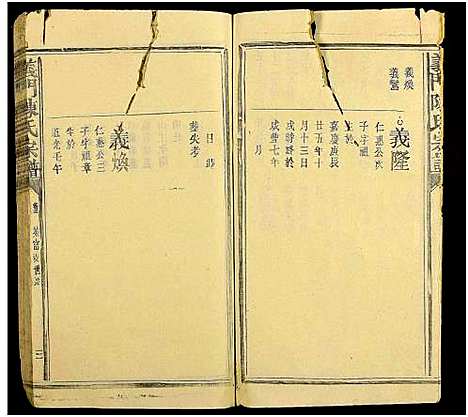 義門陳氏宗譜
義煥
義鸞
義隆
仁惠公次
子字祖
生於
嘉慶庚辰
廿五年十
月十三日
戌時歿於
咸豐七年
月
日時
葬失考
義煥
仁惠公三
子字祖章
生於
道光壬午
義門陳氏宗譜
三